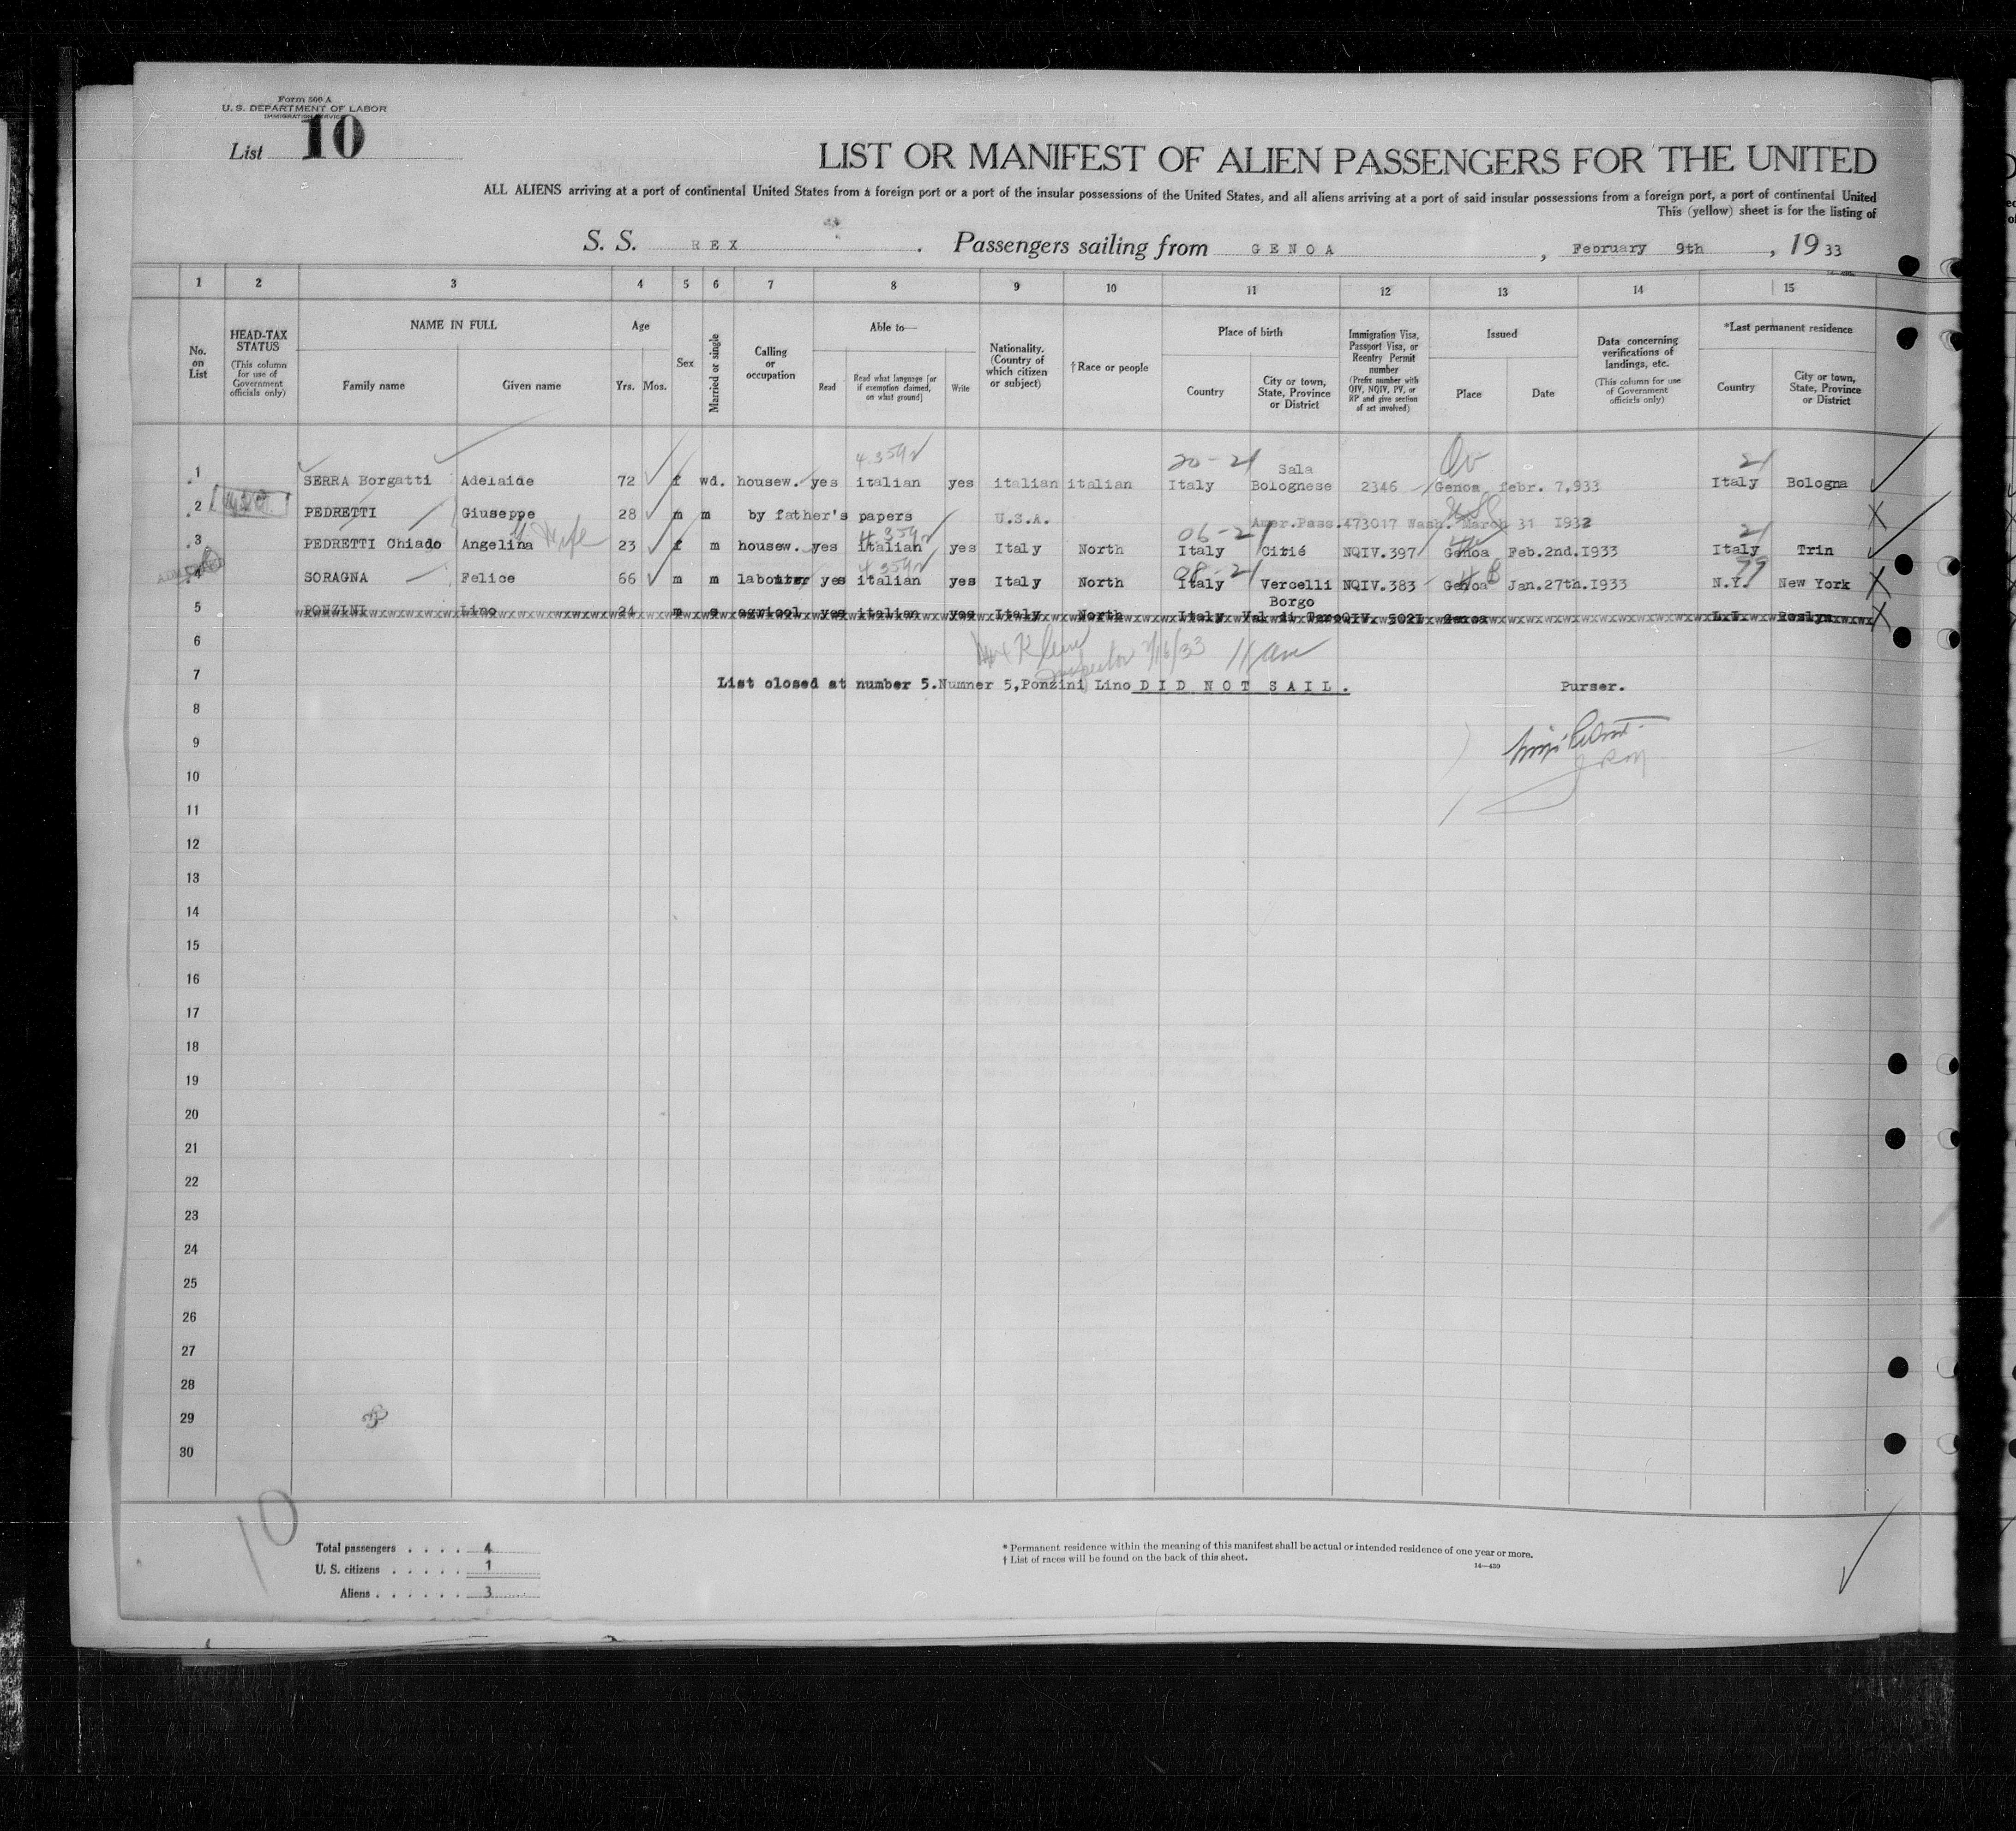 Form 500 A
U. S. DEPARTMENT OF LABOR
IMMIGRATION SERVICE
List 10
LIST OR MANIFEST OF ALIEN PASSENGERS FOR THE UNITED
ALL ALIENS arriving at a port of continental United States from a foreign port or a port of the insular possessions of the United States, and all aliens arriving at a port of said insular possessions from a foreign port, a port of continental United
This (yellow) sheet is for the listing of
S. S. REX. Passengers sailing from GENOA, February 9th, 1933
1 2 3 4 5 6 7 8 9 10 11 12 13 14 15
No. on List
HEAD-TAX STATUS (This column for use of Government officials only)
NAME IN FULL
Family name
Given name
Age
Yrs. Mos.
Sex
Married or single
Calling or occupation
Able to—
Read
Read what language [or if exemption claimed, on what ground]
Write
Nationality. (Country of which citizen or subject)
†Race or people
Place of birth
Country
City or town, State, Province or District
Immigration Visa, Passport Visa, or Reentry Permit number (Prefix number with QIV, NQIV, PV, or RP and give section of act involved)
Issued
Place
Date
Data concerning verifications of landings, etc. (This column for use of Government officials only)
*Last permanent residence
Country
City or town, State, Province or District
20-21 21
1 SERRA Borgatti Adelaide 72 f wd. housew. yes italian yes italian italian Italy Sala Bolognese 2346 Genoa febr. 7,933 Italy Bologna
2 PEDRETTI Giuseppe 28 m m by father's papers U.S.A. Amer.Pass.473017 Wash. March 31 1932
06-21 21
3 PEDRETTI Chiado Angelina 23 f m housew. yes italian yes Italy North Italy Cirié NQIV.397 Genoa Feb.2nd.I933 Italy Trin
08-21 99
4 SORAGNA Felice 66 m m labourer yes italian yes Italy North Italy Vercelli NQIV.383 Genoa Jan.27th.I933 N.Y. New York
5 PONZINI Lino 24 m s agricol yes italian yes Italy North Italy Borgo Val di Taro QIV. 502I Genoa L.I. Roslyn
6
Inspector 2/16/33
7 List closed at number 5.Numner 5,Ponzini Lino DID NOT SAIL. Purser.
8
9
10
11
12
13
14
15
16
17
18
19
20
21
22
23
24
25
26
27
28
29
30
10
Total passengers . . . . 4
U. S. citizens . . . . . 1
Aliens . . . . . . 3
* Permanent residence within the meaning of this manifest shall be actual or intended residence of one year or more.
† List of races will be found on the back of this sheet.
14—430